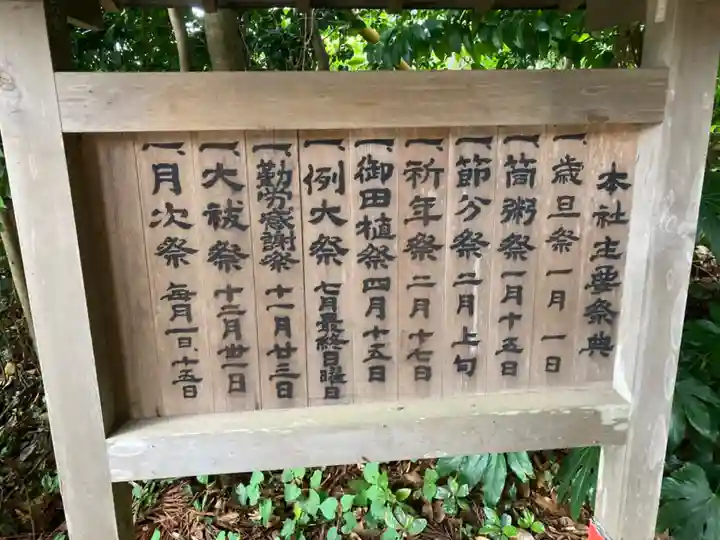 本社主要祭典
一、歳旦祭 一月一日
一、筒粥祭 一月十五日
一、節分祭 二月上旬
一、祈年祭 二月十七日
一、御田植祭 四月十五日
一、例大祭 七月最終日曜日
一、勤労感謝祭 十一月廿三日
一、大祓祭 十二月丗一日
一、月次祭 毎月一日、十五日